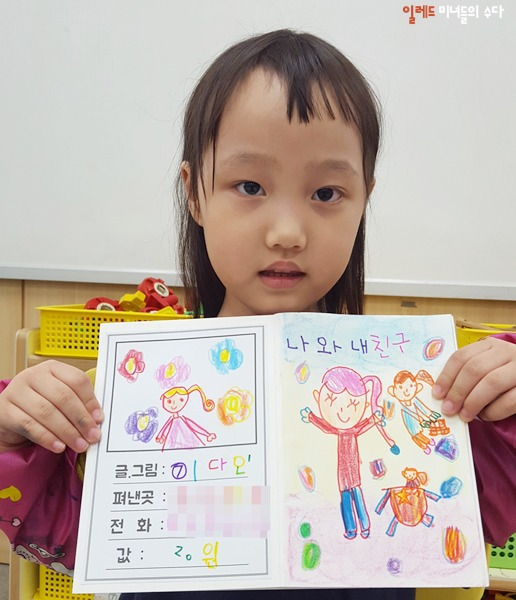 일레드 미녀들의 수다
나와 내친구
글.그림 :
펴낸곳 :
전 화 :
값 : 20 원